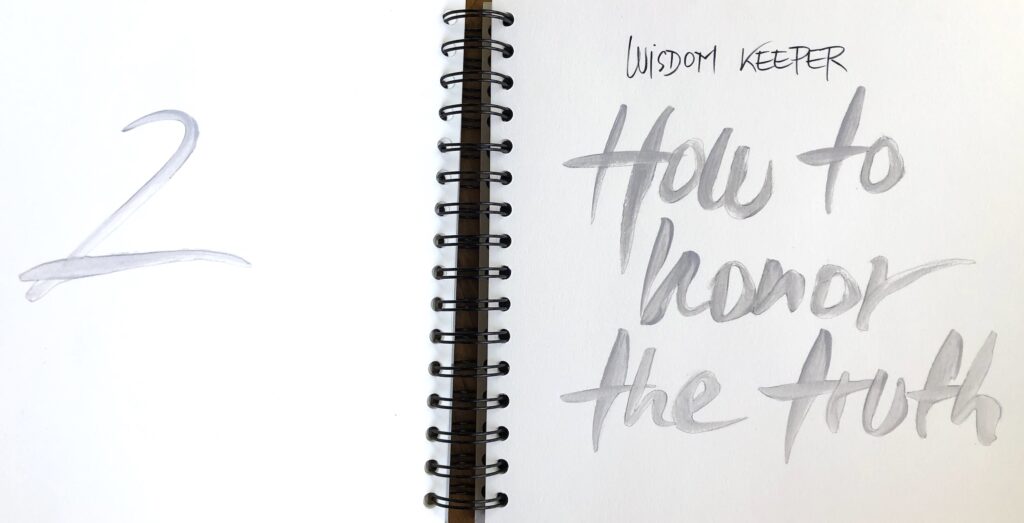 2
WISDOM KEEPER
How to
honor
the truth